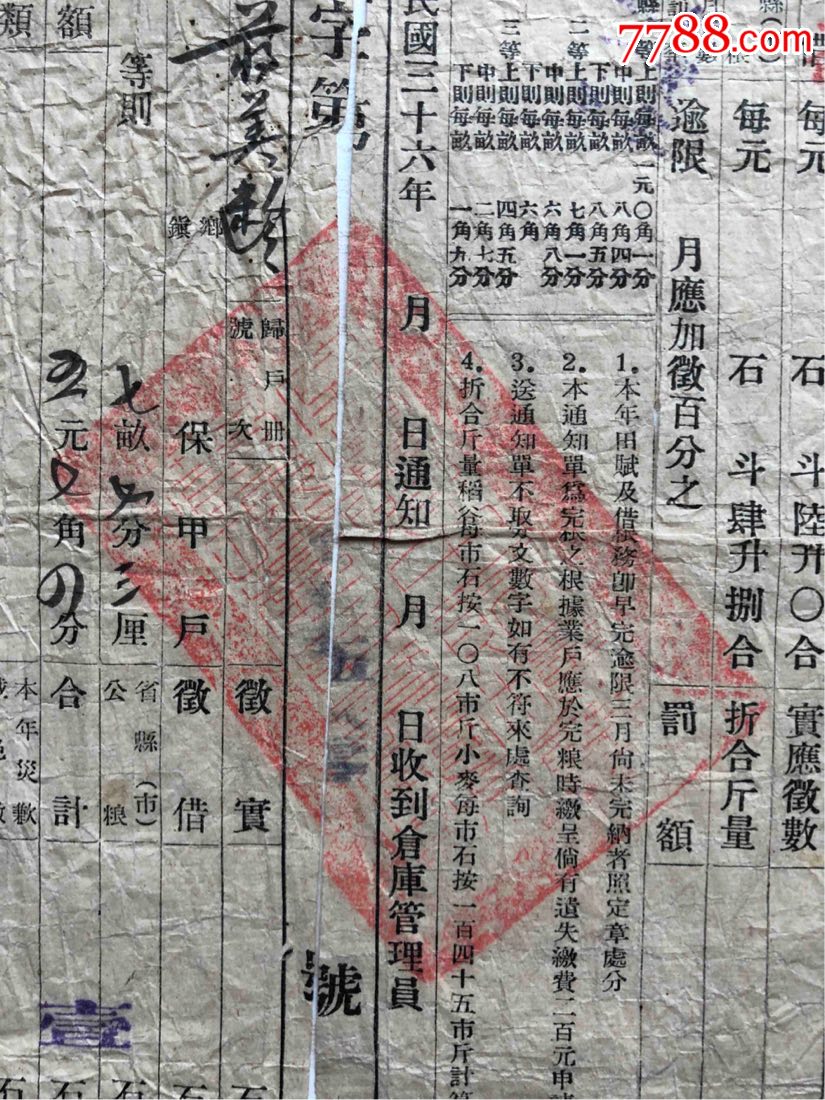 7788.com
每元
石
斗陸升〇合
實應徵數
每元
石
斗肆升捌合
折合斤量
逾限
月應加徵百分之
罰
額
1.本年田賦及借粮務卽早完逾限三月尙未完納者照定章處分
2.本通知單爲完粮之根據業戶應於完粮時繳呈倘有遺失繳費二百元申
3.送通知單不取分文數字如有不符來處查詢
4.折合斤量稻谷每市石按一〇八市斤小麥每市石按一百四十五市斤計
等上則每畝一元〇角一分
中則每畝八角四分
下則每畝八角五分
二等上則每畝七角一分
中則每畝六角八分
下則每畝六角
三等上則每畝四角五分
中則每畝二角七分
下則每畝一角九分
民國三十六年
月
日通知
月
日收到倉庫管理員
字第
號
歸戶冊
號次
徵實
鄉
鎮
保甲戶
徵借
等則
七畝
分三厘
省縣(市)
公粮
額
五元
角
分
合計
壹
類
本年災歉
石
石
石
石
石